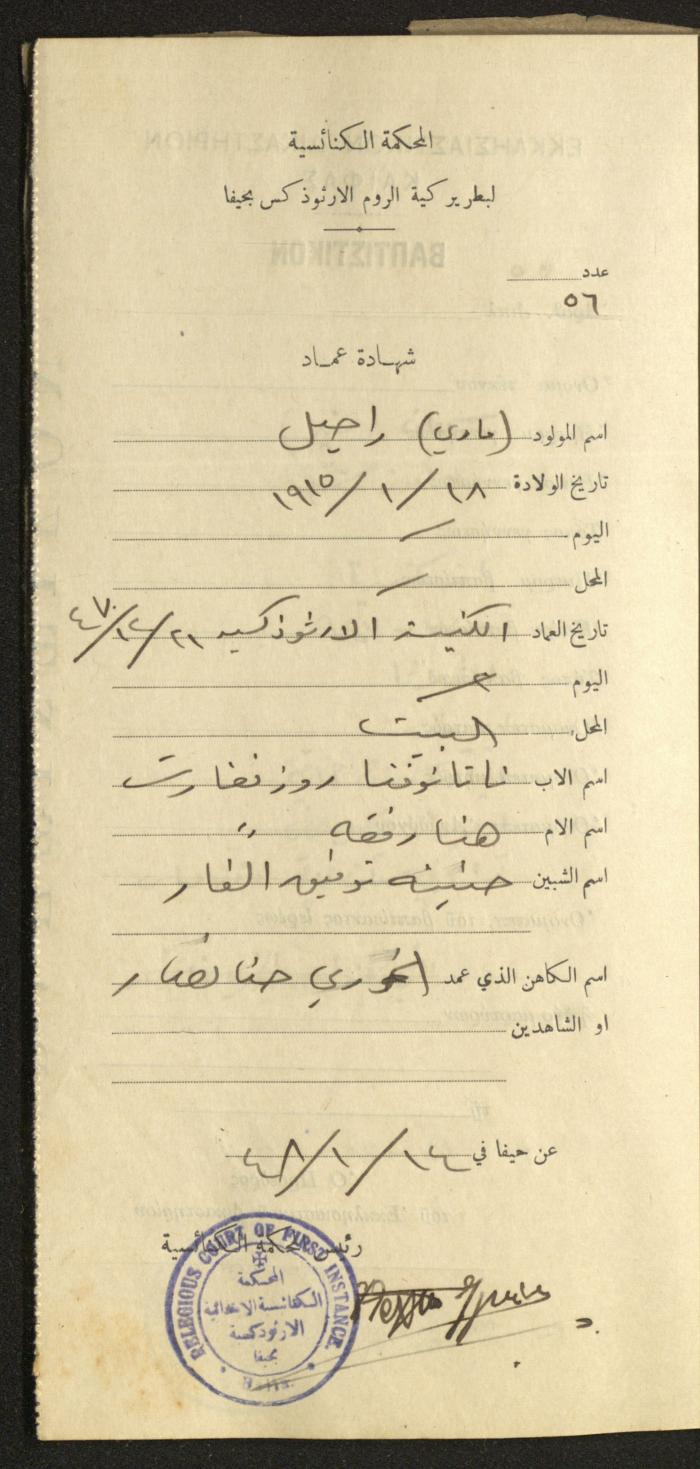 المحكمة الكنائسية
لبطريركية الروم الارثوذكس بحيفا
عدد
٥٦
شهادة عماد
اسم المولود (ماري) راحيل
تاريخ الولادة ١٨/١/١٩١٥
اليوم
المحل
تاريخ العماد الكنيسة الارثوذكسيه
اليوم
المحل البيت
اسم الاب روزنغارت
اسم الام هنا رفقه "
اسم الشبين توفيق الفار
اسم الكاهن الذي عمد الخوري حنا
او الشاهدين
عن حيفا في ١٤/١/٤٨
رئيس المحكمة الكنائسية
RELEGIOUS COURT OF FIRST INSTANCE
المحكمة
الكنائسية الابتدائية
الارثوذكسية
بحيفا
Haifa